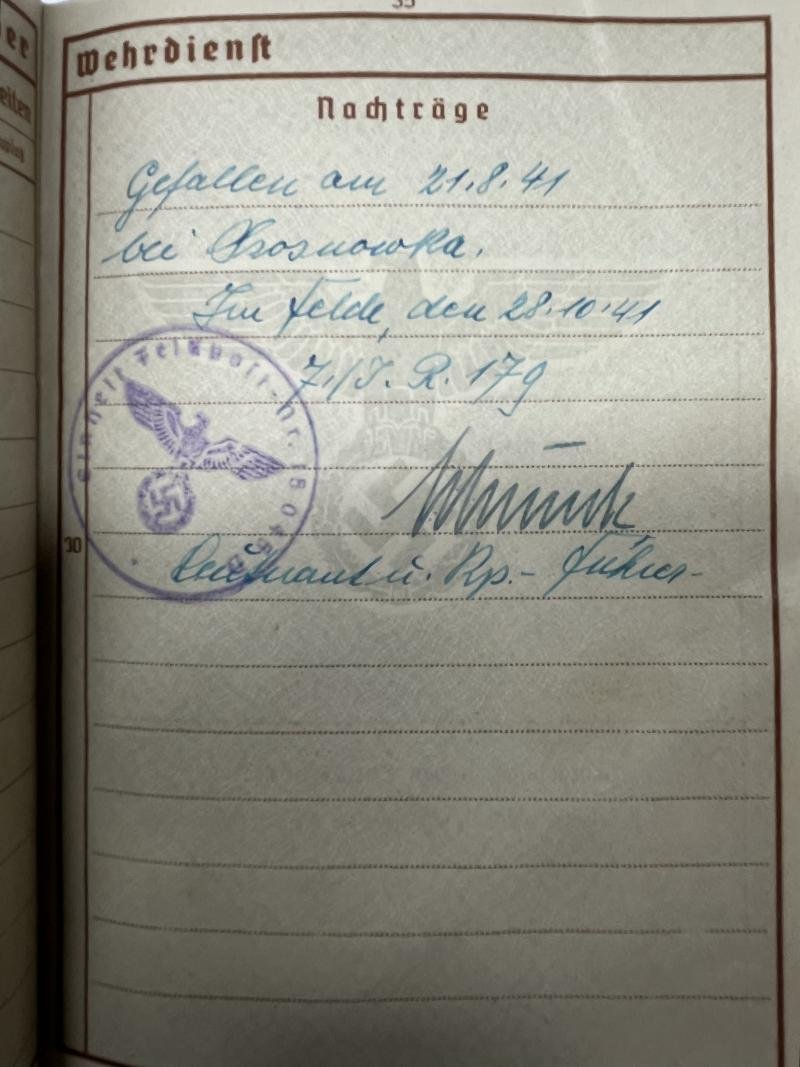 35
Wehrdienst
Nachträge
Gefallen am 21.8.41
bei
Im Felde, den 28.10.41
7./I. R. 179
Einheit Feldpost-Nr.
30
Leutnant u. Kp.-Führer-